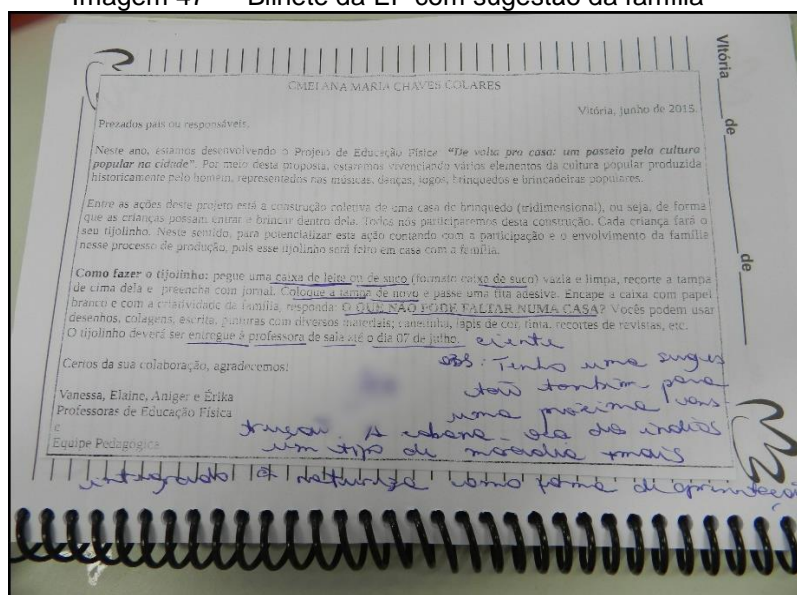 Imagem 47 – Bilhete da EF com sugestão da família
CMEI ANA MARIA CHAVES COLARES
Vitória, junho de 2015.
Prezados pais ou responsáveis,
Neste ano, estamos desenvolvendo o Projeto de Educação Física "De volta pra casa: um passeio pela cultura
popular na cidade". Por meio desta proposta, estaremos vivenciando vários elementos da cultura popular produzida
historicamente pelo homem, representados nas músicas, danças, jogos, brinquedos e brincadeiras populares.
Entre as ações deste projeto está a construção coletiva de uma casa de brinquedo (tridimensional), ou seja, de forma
que as crianças possam entrar e brincar dentro dela. Todos nós participaremos desta construção. Cada criança fará o
seu tijolinho. Neste sentido, para potencializar esta ação contando com a participação e o envolvimento da família
nesse processo de produção, pois esse tijolinho será feito em casa com a família.
Como fazer o tijolinho: pegue uma caixa de leite ou de suco (formato caixa de suco) vazia e limpa, recorte a tampa
de cima dela e preencha com jornal. Coloque a tampa de novo e passe uma fita adesiva. Encape a caixa com papel
branco e com a criatividade da família, responda: O QUE NÃO PODE FALTAR NUMA CASA? Vocês podem usar
desenhos, colagens, escrita, pinturas com diversos materiais; canetinha, lápis de cor, tinta, recortes de revistas, etc.
O tijolinho deverá ser entregue à professora de sala até o dia 07 de julho.
ciente
Certos da sua colaboração, agradecemos!
OBS: Tenho uma suges
tão também para
uma próxima cons-
trução. A cabana - oca dos índios
um tipo de moradia mais
integrada a natureza como forma de
Vanessa, Elaine, Aniger e Érika
Professoras de Educação Física
e
Equipe Pedagógica
Vitória ____ de ____ de